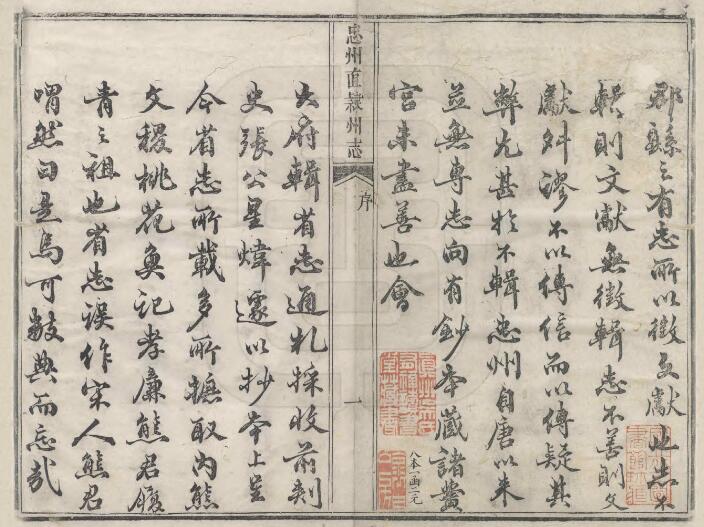 郡縣之有志所以徵文獻也志不
輯則文獻無徵輯志不善則文
獻舛謬不以傳信而以傳疑其
弊尤甚於不輯忠州自唐以來
並無專志向有鈔本藏諸黌
宮未盡善也會
八本一函二元
忠州直隸州志
序
一
大府輯省志通札採收前刺
史張公星煒遽以抄本上呈
今省志所載多所摭取內熊
文稷桃花魚記孝廉熊君履
青之祖也省志誤作宋人熊君
喟然曰是烏可數典而忘哉